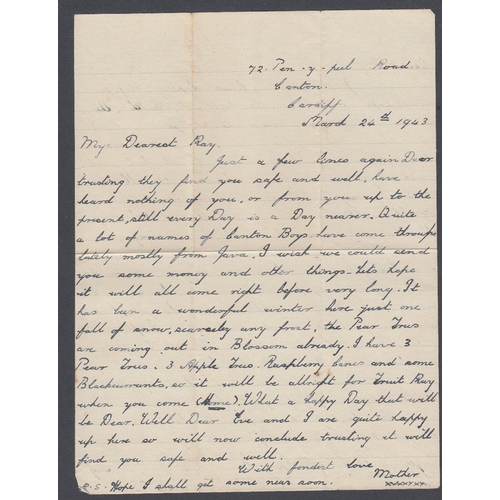 72. Pen-y-peel Road.
Canton.
Cardiff.
March 24th 1943
My Dearest Ray.
Just a few lines again Dear
trusting they find you safe and well, have
heard nothing of you, or from you up to the
present, still every Day is a Day nearer. Quite
a lot of names of Canton Boys have come through
lately mostly from Java. I wish we could send
you some money and other things. Lets hope
it will all come right before very long. It
has been a wonderful winter here just one
fall of snow, scarcely any frost, the Pear Trees
are coming out in Blossom already. I have 3
Pear Trees. 3 Apple Trees. Raspberry Canes and some
Blackcurrants, so it will be allright for Fruit Ray
when you come (Home). What a Happy Day that will
be Dear. Well Dear Eve and I are quite happy
up here so will now conclude trusting it will
find you safe and well.
With fondest love
Mother
xxxxxxx
P.S. Hope I shall get some news soon.